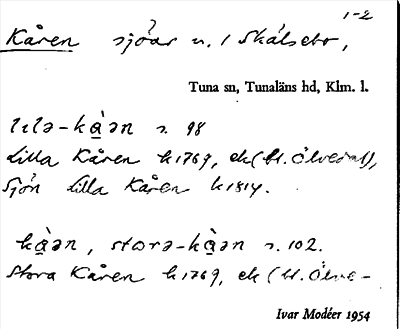 1-2
Kåren sjöar n. / Skälsebo,
Tuna sn, Tunaläns hd, Klm. l.
lɩlə-kὰən s. 98
Lilla Kåren k1769, ek (bl. Ölvedal),
Sjön Lilla Kåren k1814.
kὰən, storə-kὰən s. 102.
Stora Kåren k1769, ek (bl. Ölve-
Ivar Modéer 1954